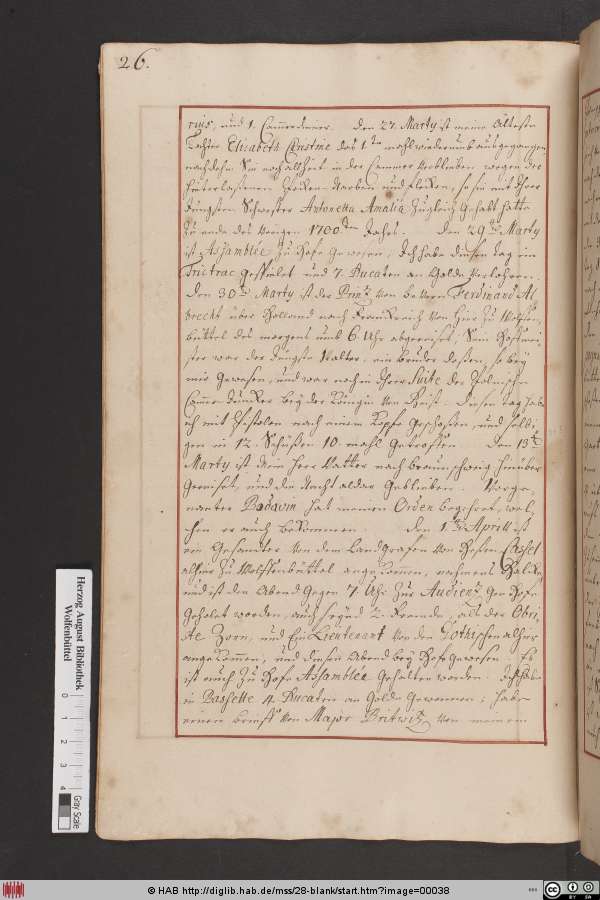 26.
und 1. Cammerdiener. Den 27. Marty ist meine älteste
Tochter Elisabeth Christine das 1te mahl wiederumb ausgegangen
nachdehm Sie noch allzeit in der Cammer verblieben wegen der
hinterlassenen Narben und Flecken, so sie mit Ihrer
Jüngsten Schwester Antonetta Amalia zugleich gehabt hatte
zu ende des vorigen 1700ten Jahrs. Den 29ten Marty
ist Assamblée zu Hofe gewesen, Ich habe diesen tag im
Trictrac gespielet und 7. Ducaten an Golde verlohren.
Den 30ten Marty ist der Printz von Bevern Ferdinand Al
brecht über Holland nach Franckreich von hier zu Wolffen,
büttel des morgens umb 6 Uhr abgereiset, Sein Hoffmei,
ster war der Jüngste Walter, ein bruder dessen, so bey
mir gewesen, und war noch in Ihrer Suite der
Cammer Juncker bey der Königin von Diesen tag hab
ich mit Pistolen nach einem Kopfe geschossen, und sel
gen in 12 Schüssen 10 mahl getroffen. Den 13t
Marty ist Mein Herr Vatter nach braunschweig hinüber
gereiset, und die Nacht aldar geblieben. Vorge,
nanter Badavin hat meinen Orden begehret, wel,
chen er auch bekommen. Den 1ten Aprill ist
ein Gesanter von dem Landgrafen von Hessen Cassel
alhier zu Wolffenbüttel angekommen, nahmens
und ist den Abend gegen 7 Uhr zur Audientz gen Hofe
geholet worden, auch seynd 2. Fremde, als der Obri,
ste Zorn, und Ein Lieutenant von den Gothischen alhier
angekommen, und diesen Abend bey Hofe gewesen. Es
ist auch zu Hofe Assamblée gehalten worden. Ich habe
in Bassette 4. Ducaten an Golde gewonnen; habe
einen brieff von Major Britwitz von meinem
Herzog August Bibliothek
Wolfenbüttel
0 1 2 3 4
Gray Scale
© HAB http://diglib.hab.de/mss/28-blank/start.htm?image=00038
CC BY SA